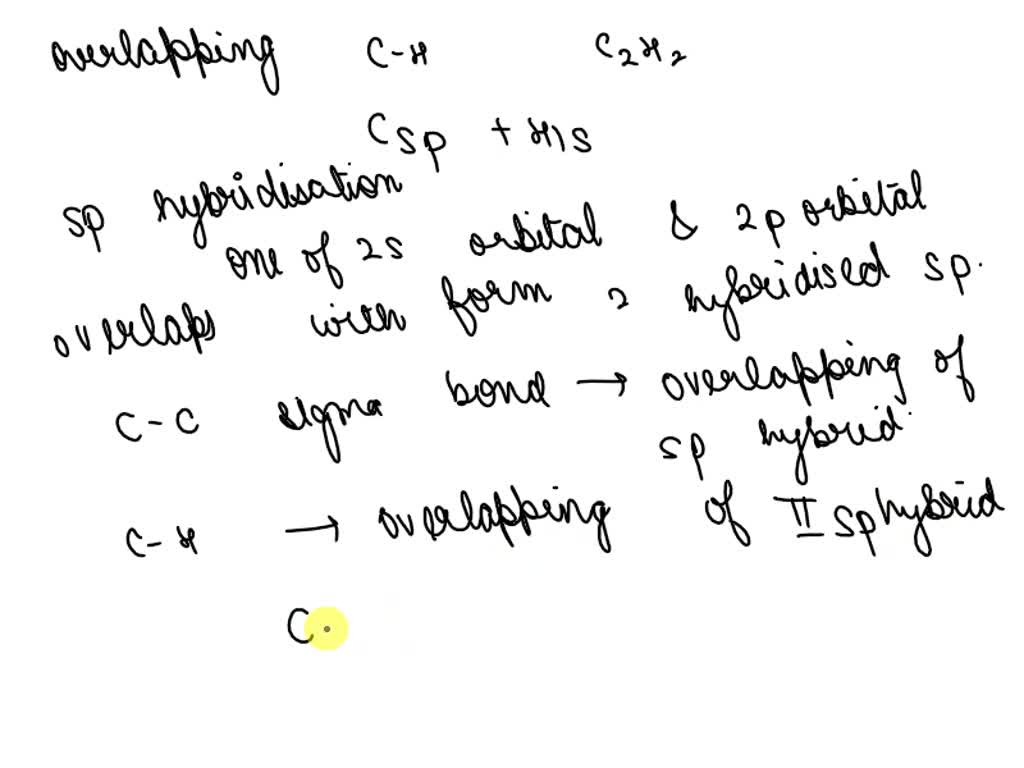 overlapping C-H C2H2
Csp + H1s
sp hybridisation
one of 2s orbital & 2p orbital
overlaps with form 2 hybridised sp.
C-C sigma bond → overlapping of
sp hybrid
C-H → overlapping of II sp hybrid
C